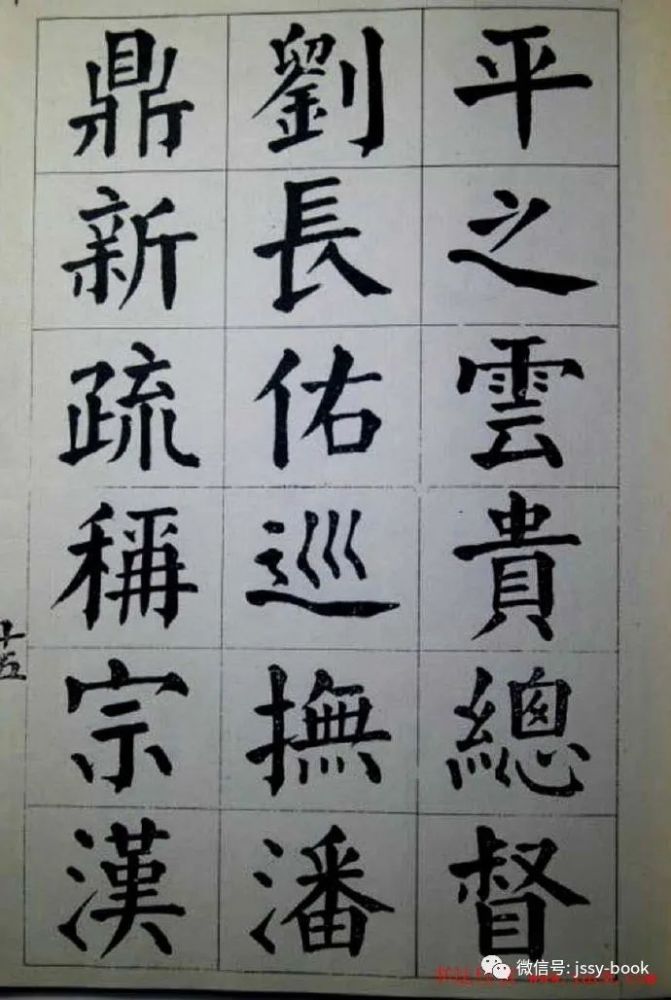 平之雲貴總督
劉長佑巡撫潘
鼎新疏稱宗漢
十五
微信号: jssy-book